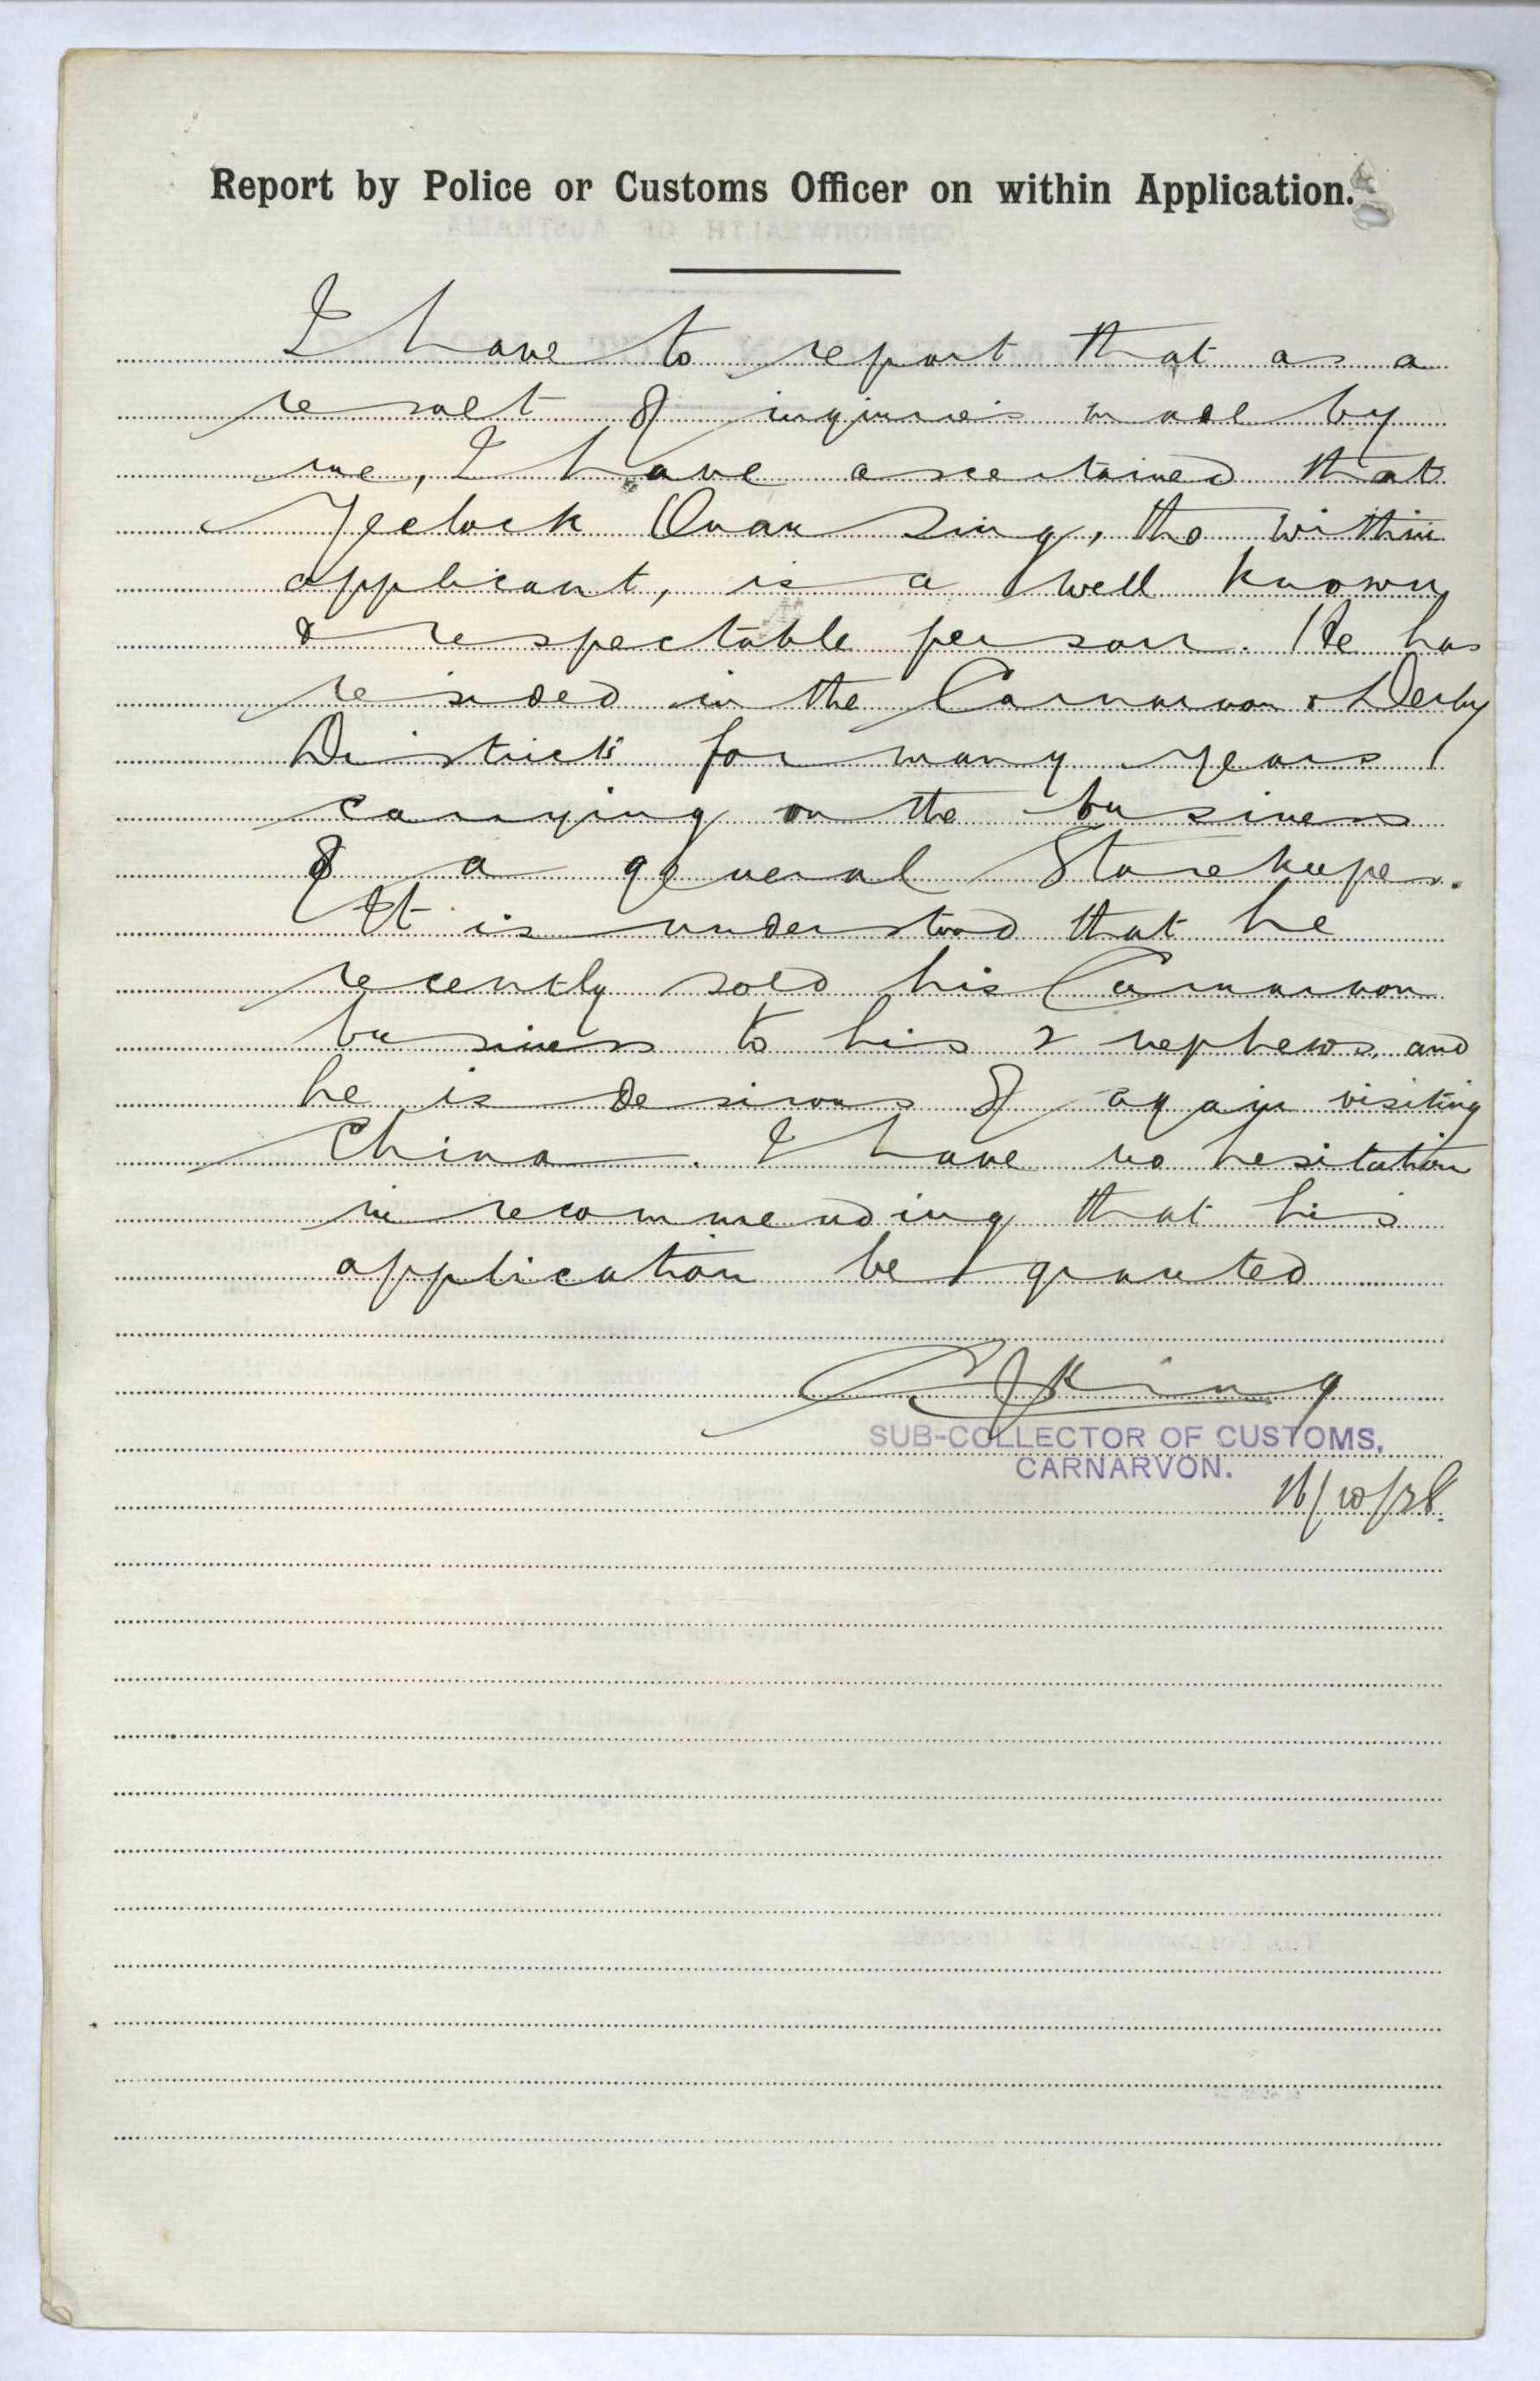 Report by Police or Customs Officer on within Application.
I have to report that as a
result of inquiries made by
me, I have ascertained that
Yeelock Quan Sing, the within
applicant, is a well known
& respectable person. He has
resided in the Carnarvon & Derby
Districts for many years
carrying on the business
of a general Storekeeper.
It is understood that he
recently sold his Carnarvon
business to his 2 nephews, and
he is desirous of again visiting
China. I have no hesitation
in recommending that his
application be granted
King
SUB-COLLECTOR OF CUSTOMS,
CARNARVON.
16/10/28.